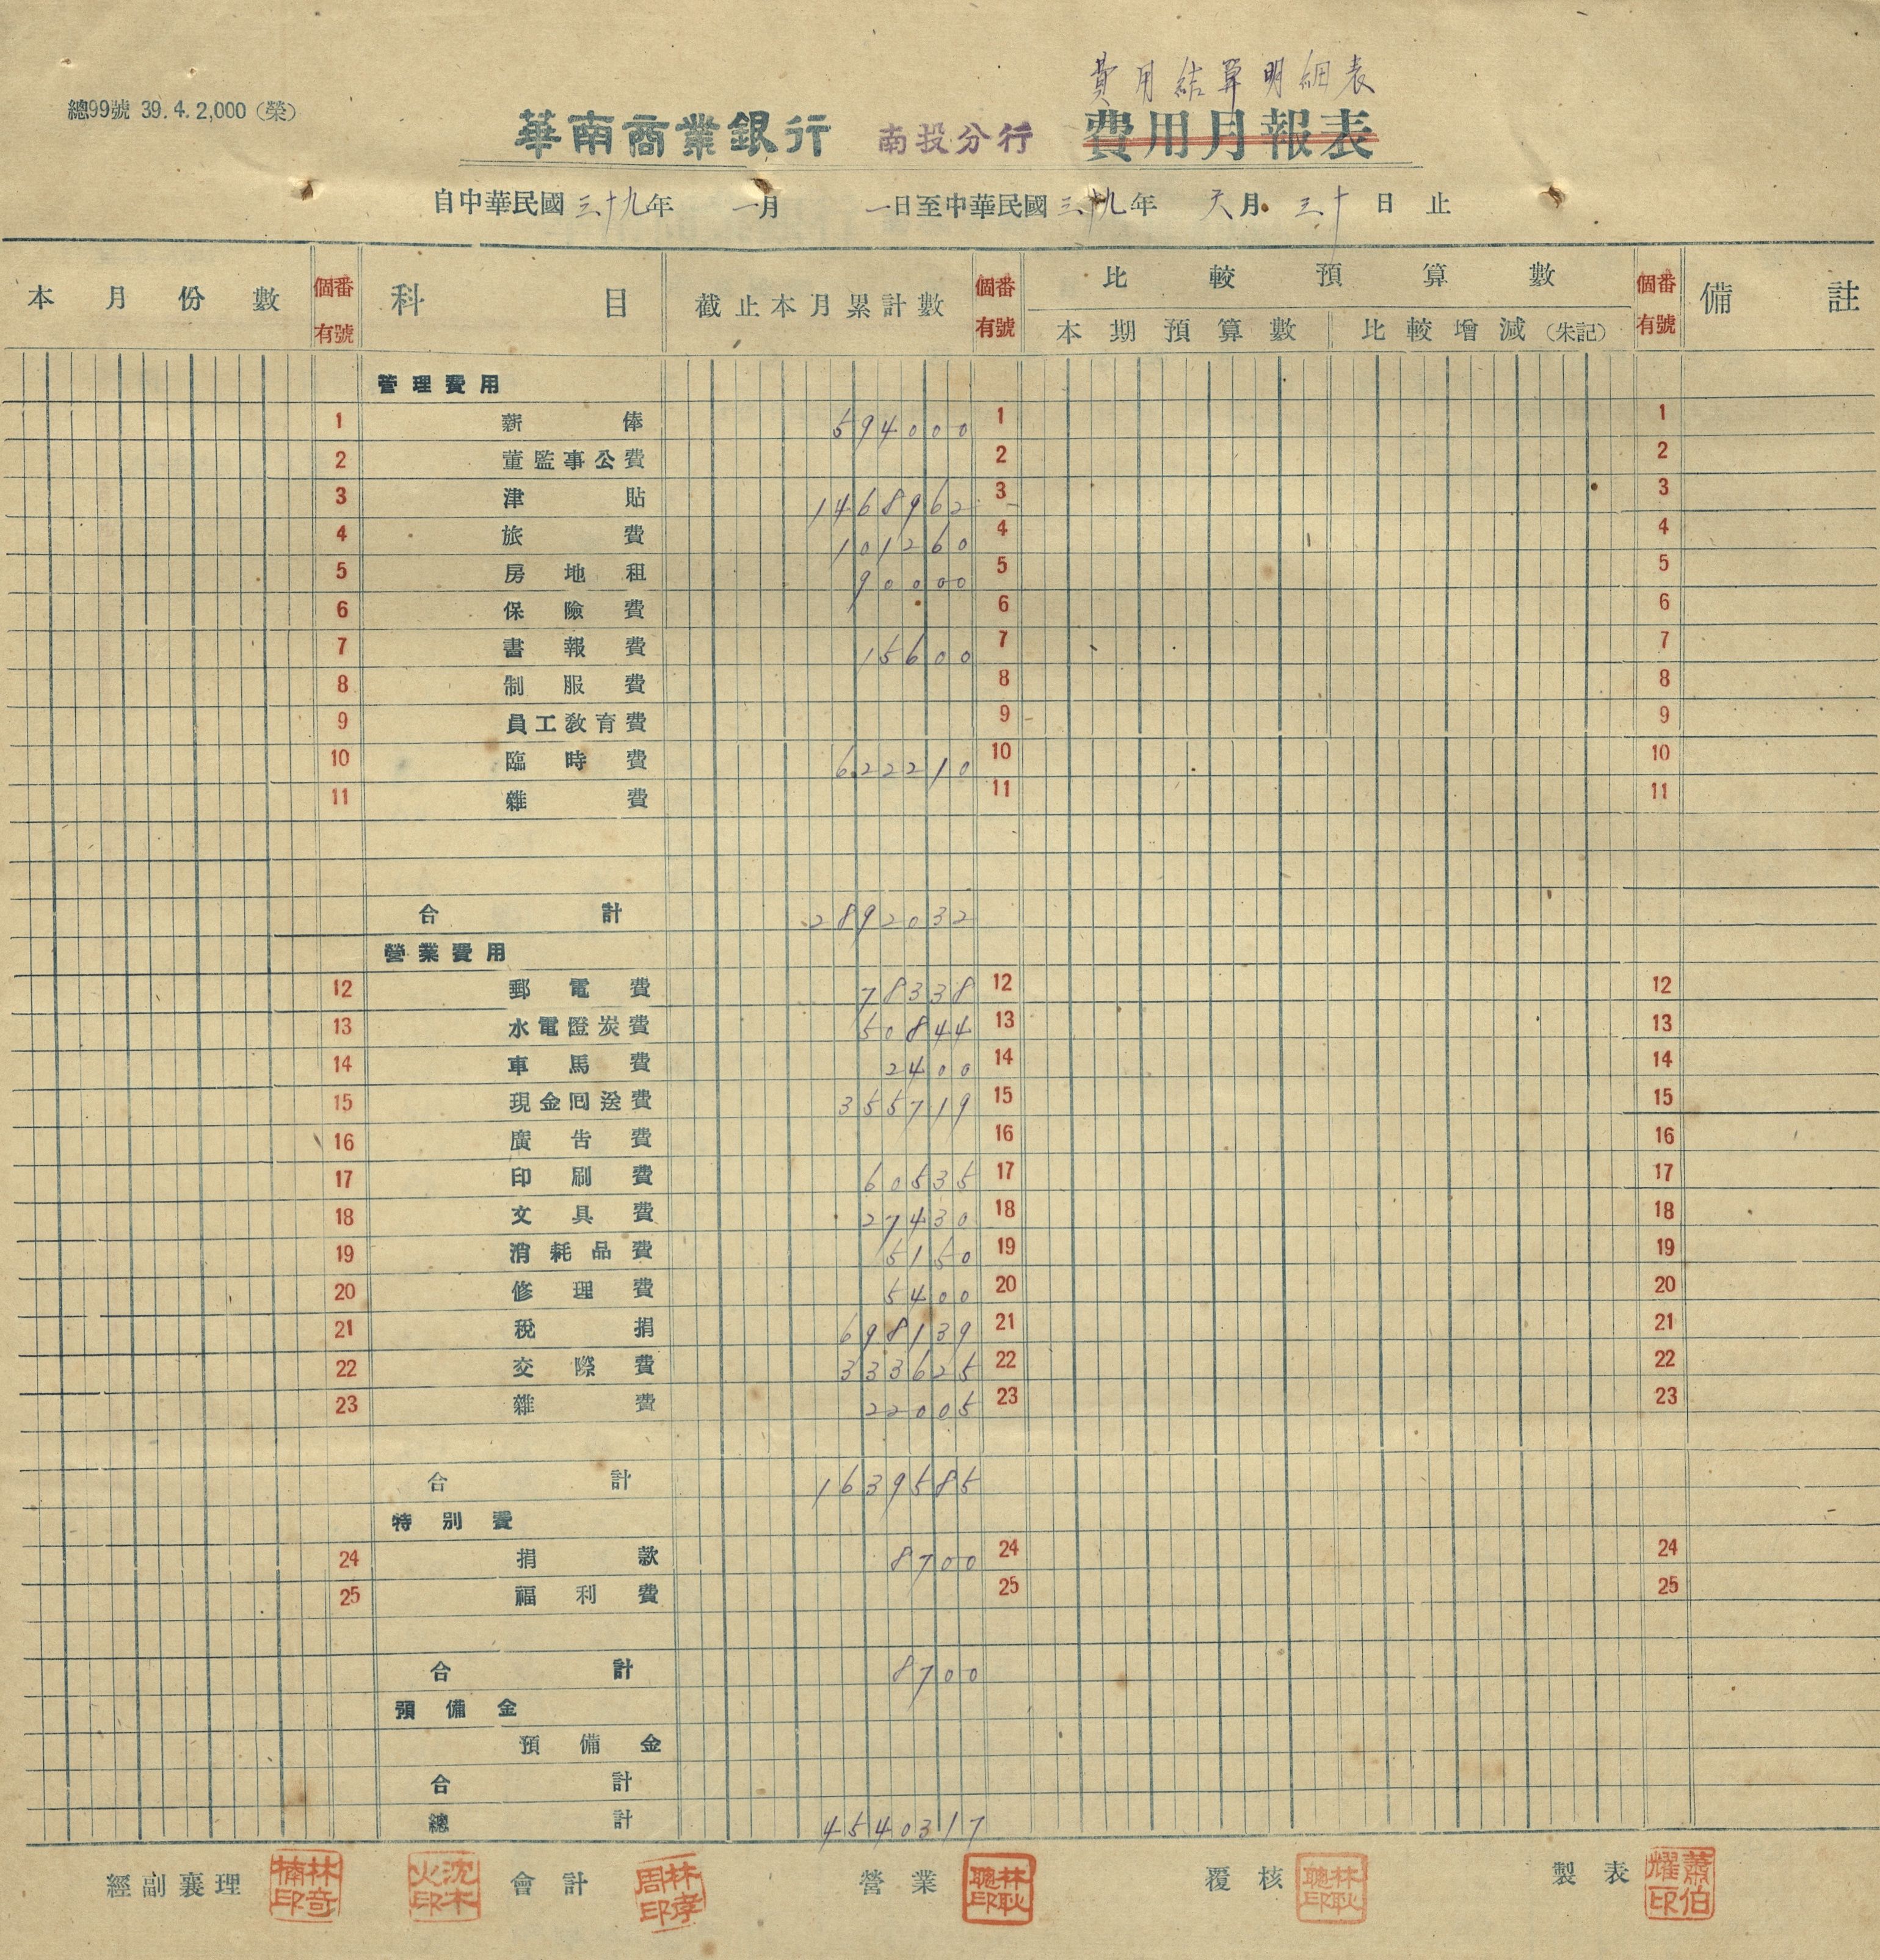 費用結算明細表
總99號 39.4.2,000(榮)
華南商業銀行 南投分行 費用月報表
自中華民國三十九年 一月 一日至中華民國三十九年 六月 三十日 止
本月份數 個番有號 科目 截止本月累計數 個番有號 比較預算數 個番有號 備註
本期預算數 比較增減(朱記)
管理費用
1 薪俸 594000 1 1
2 董監事公費 2 2
3 津貼 1468962 3 3
4 旅費 101260 4 4
5 房地租 90000 5 5
6 保險費 6 6
7 書報費 15600 7 7
8 制服費 8 8
9 員工敎育費 9 9
10 臨時費 622210 10 10
11 雜費 11 11
合計 2892032
營業費用
12 郵電費 78338 12 12
13 水電燈炭費 50844 13 13
14 車馬費 2400 14 14
15 現金回送費 355719 15 15
16 廣告費 16 16
17 印刷費 60535 17 17
18 文具費 27430 18 18
19 消耗品費 5150 19 19
20 修理費 5400 20 20
21 稅捐 698139 21 21
22 交際費 333625 22 22
23 雜費 22005 23 23
合計 1639585
特別費
24 捐款 8700 24 24
25 福利費 25 25
合計 8700
預備金
預備金
合計
總計 4540317
經副襄理 林奇楠印 沈木火印 會計 林孝周印 營業 林耿聰印 覆核 林耿聰印 製表 蕭伯耀印